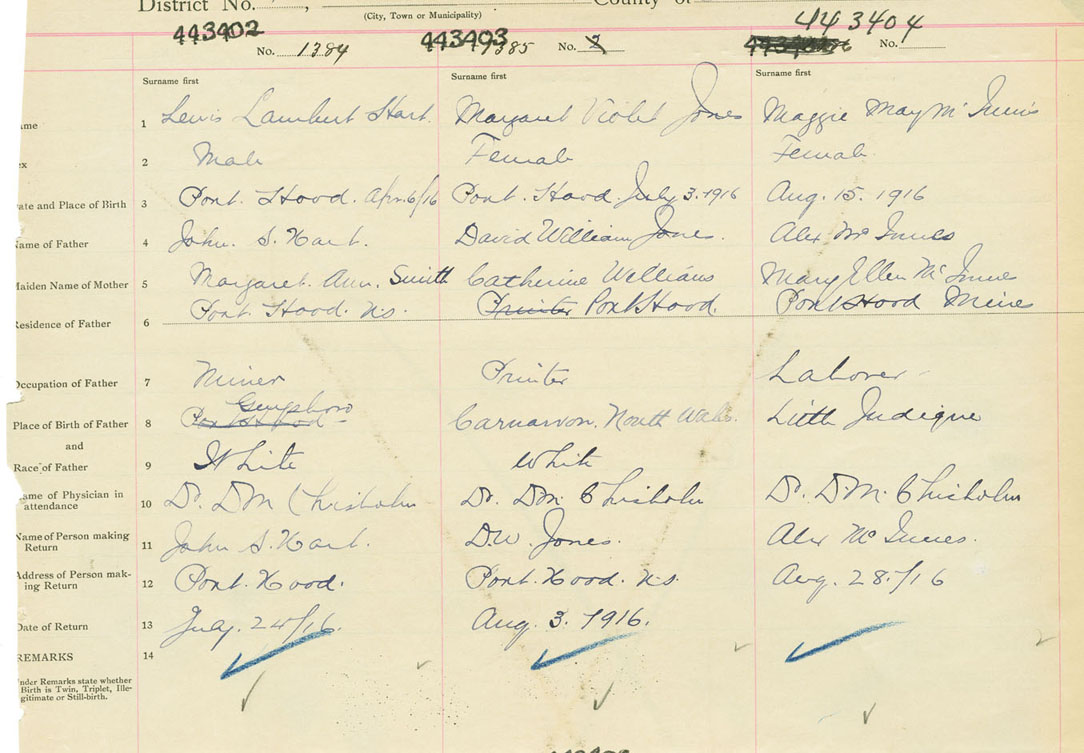 District No. , County of
(City, Town or Municipality)
443402 443403 443404
No. 1384 1385 No. 2 No.
Surname first Surname first Surname first
ame 1 Lewis Lambert Hart. Margaret Violet Jones Maggie May McInnis
ex 2 Male Female Female
Date and Place of Birth 3 Port Hood. Apr. 6/16 Port Hood July 3. 1916 Aug. 15. 1916
Name of Father 4 John. S. Hart. David William Jones. Alex McInnes
Maiden Name of Mother 5 Margaret. Ann. Smith Catherine Williams Mary Ellen McInnes
Residence of Father 6 Port Hood. N.S. Printer Port Hood. Port Hood Mine
Occupation of Father 7 Miner Printer Laborer
Place of Birth of Father 8 Guysboro Port Hood Carnarvon. North Wales. Little Judique
and
Race of Father 9 White White
ame of Physician in
attendance 10 Dr. DM Chisholm Dr. DM. Chisholm Dr. DM. Chisholm
Name of Person making
Return 11 John S. Hart. D.W. Jones. Alex McInnes.
Address of Person mak-
ing Return 12 Port. Hood. Port. Hood. N.S. Aug. 28./16
Date of Return 13 July. 24/16. Aug. 3. 1916.
REMARKS 14
nder Remarks state whether
Birth is Twin, Triplet, Ille-
gitimate or Still-birth.